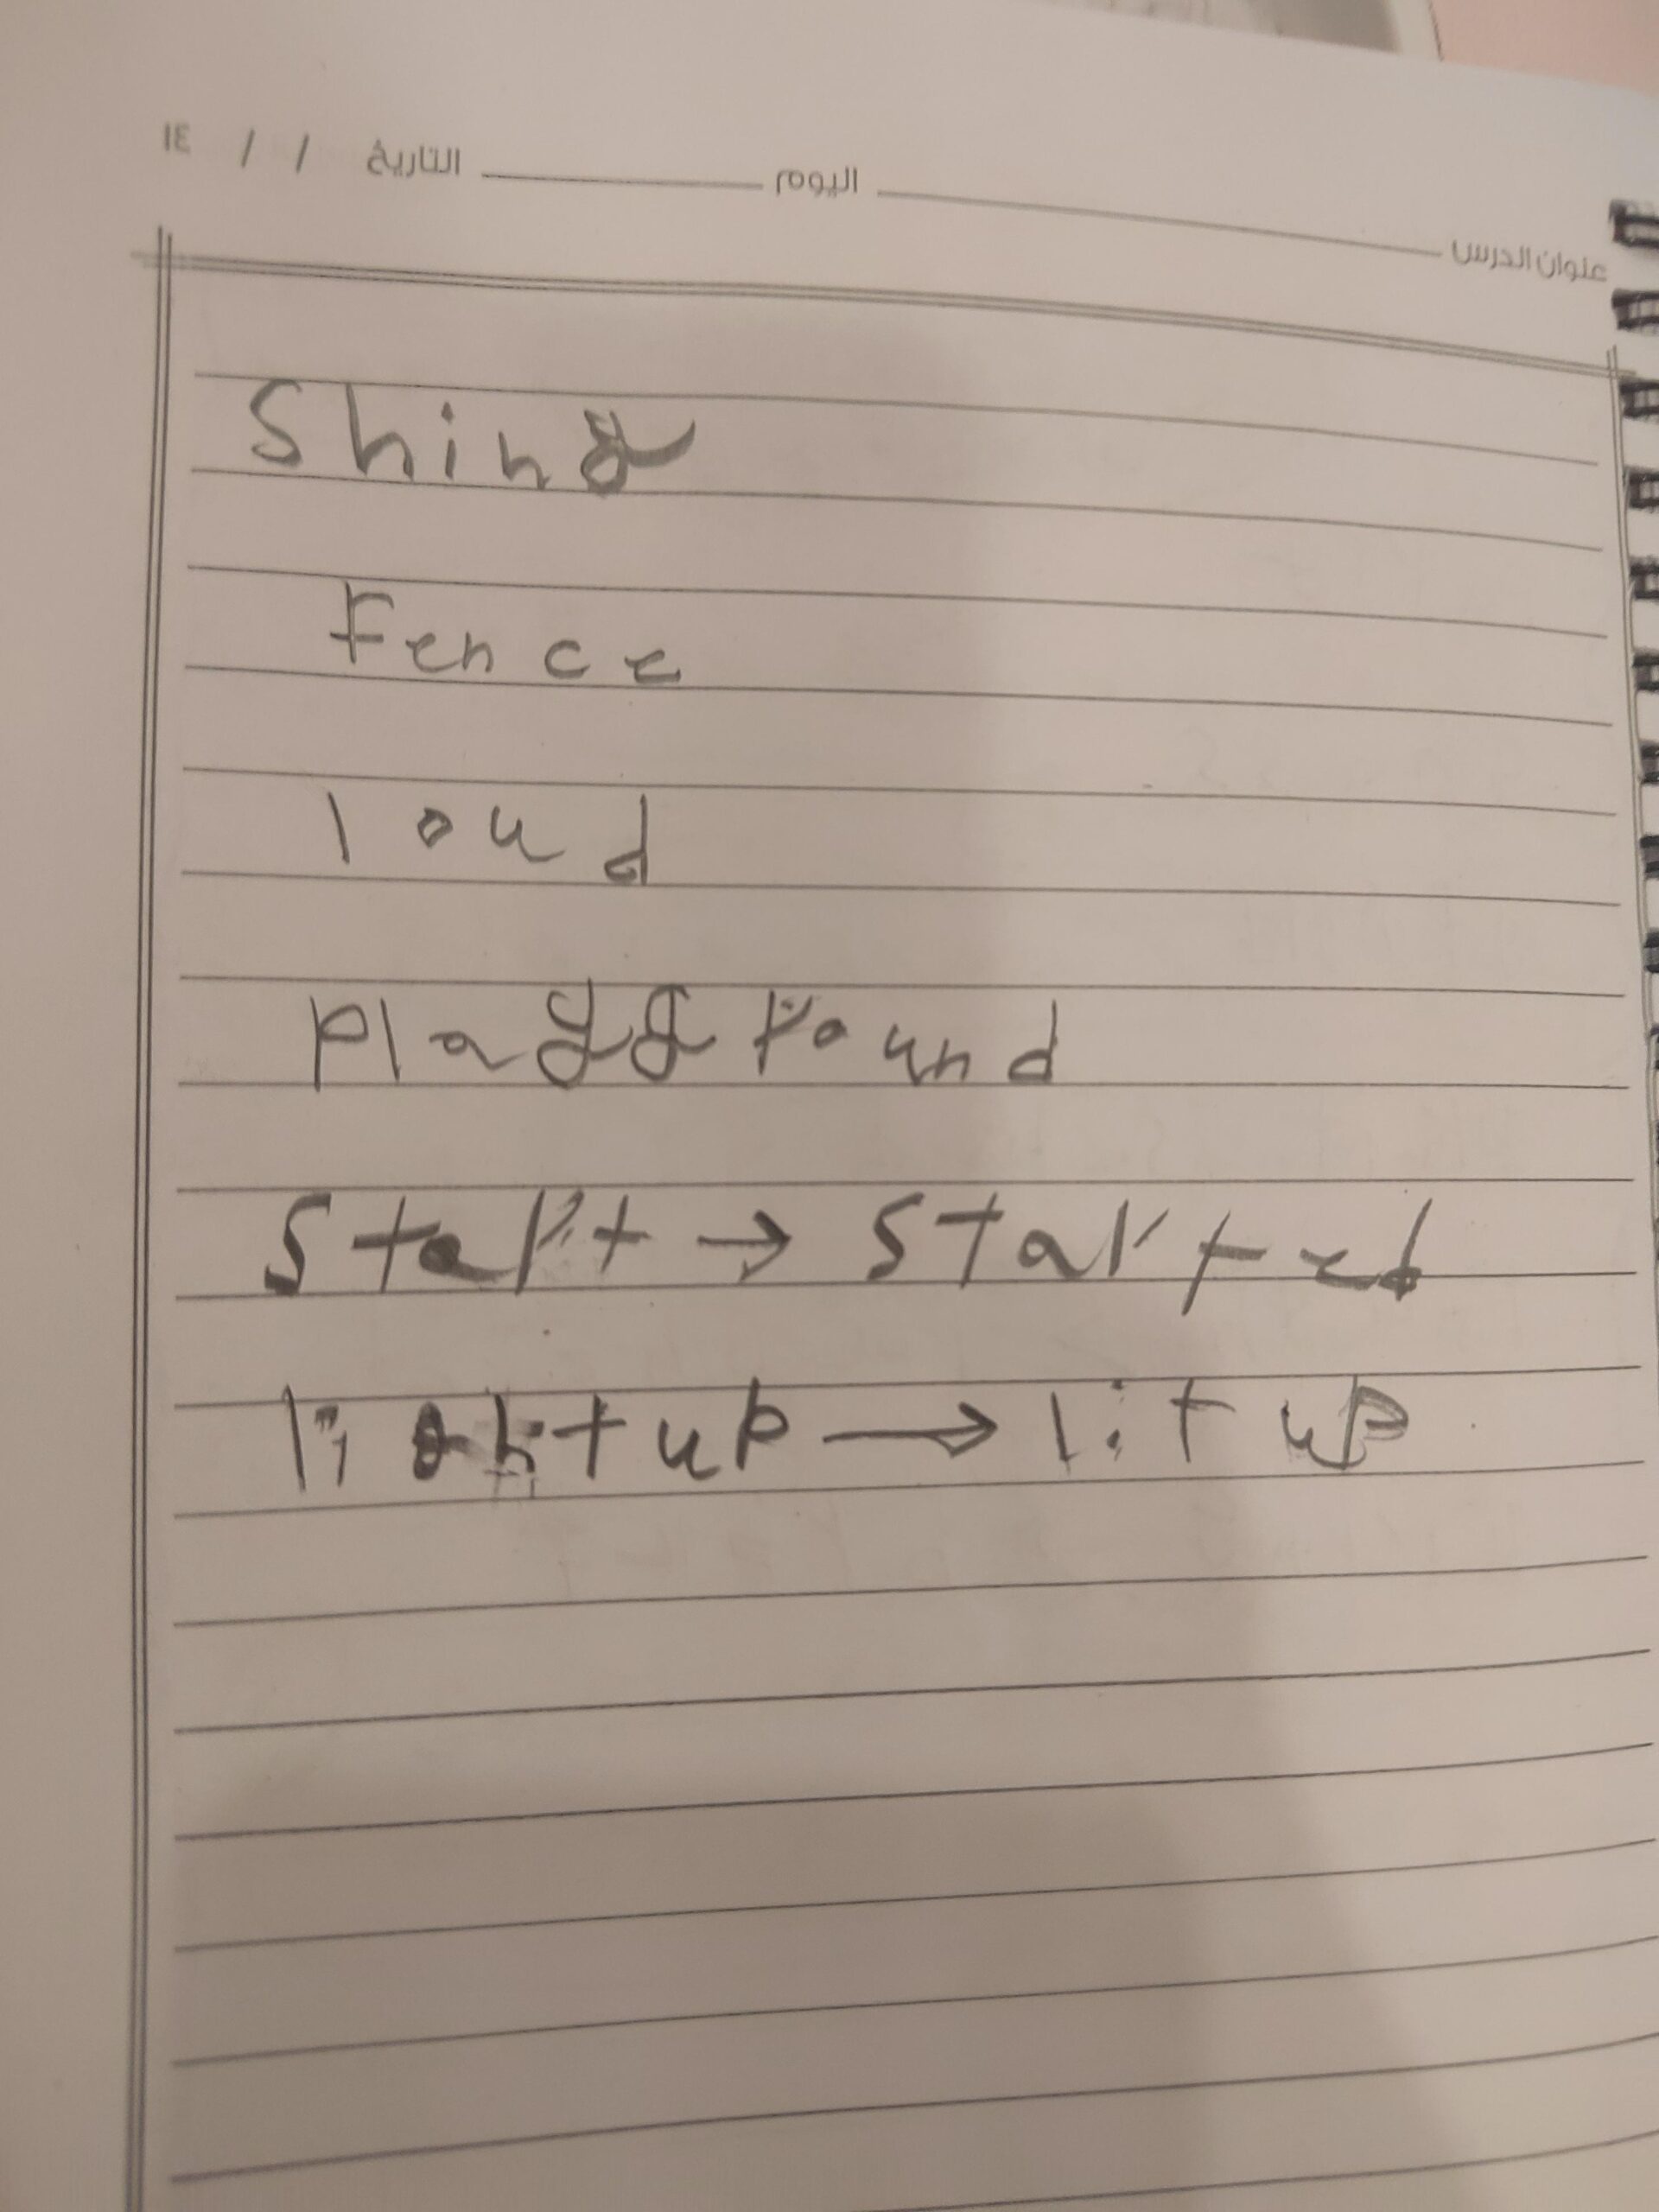 عنوان الدرس اليوم التاريخ / / ١٤
Shine
Fence
loud
Playground
Start → Started
lightup → lit up